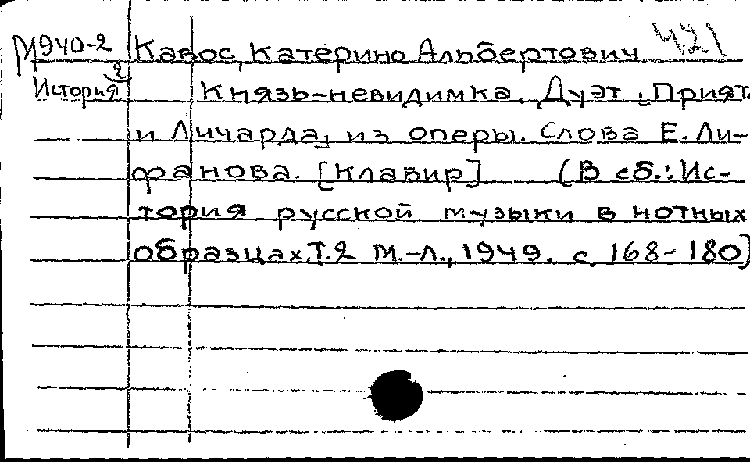 М940-2 Кавос, Катерино Альбертович 421
История 2 Князь-невидимка. Дуэт [Прият.
и Личарда] из оперы. Слова Е. Ли-
фанова. [Клавир] (В сб.: Ис-
тория русской музыки в нотных
образцах. Т. 2 М.-Л., 1949. с. 168-180)